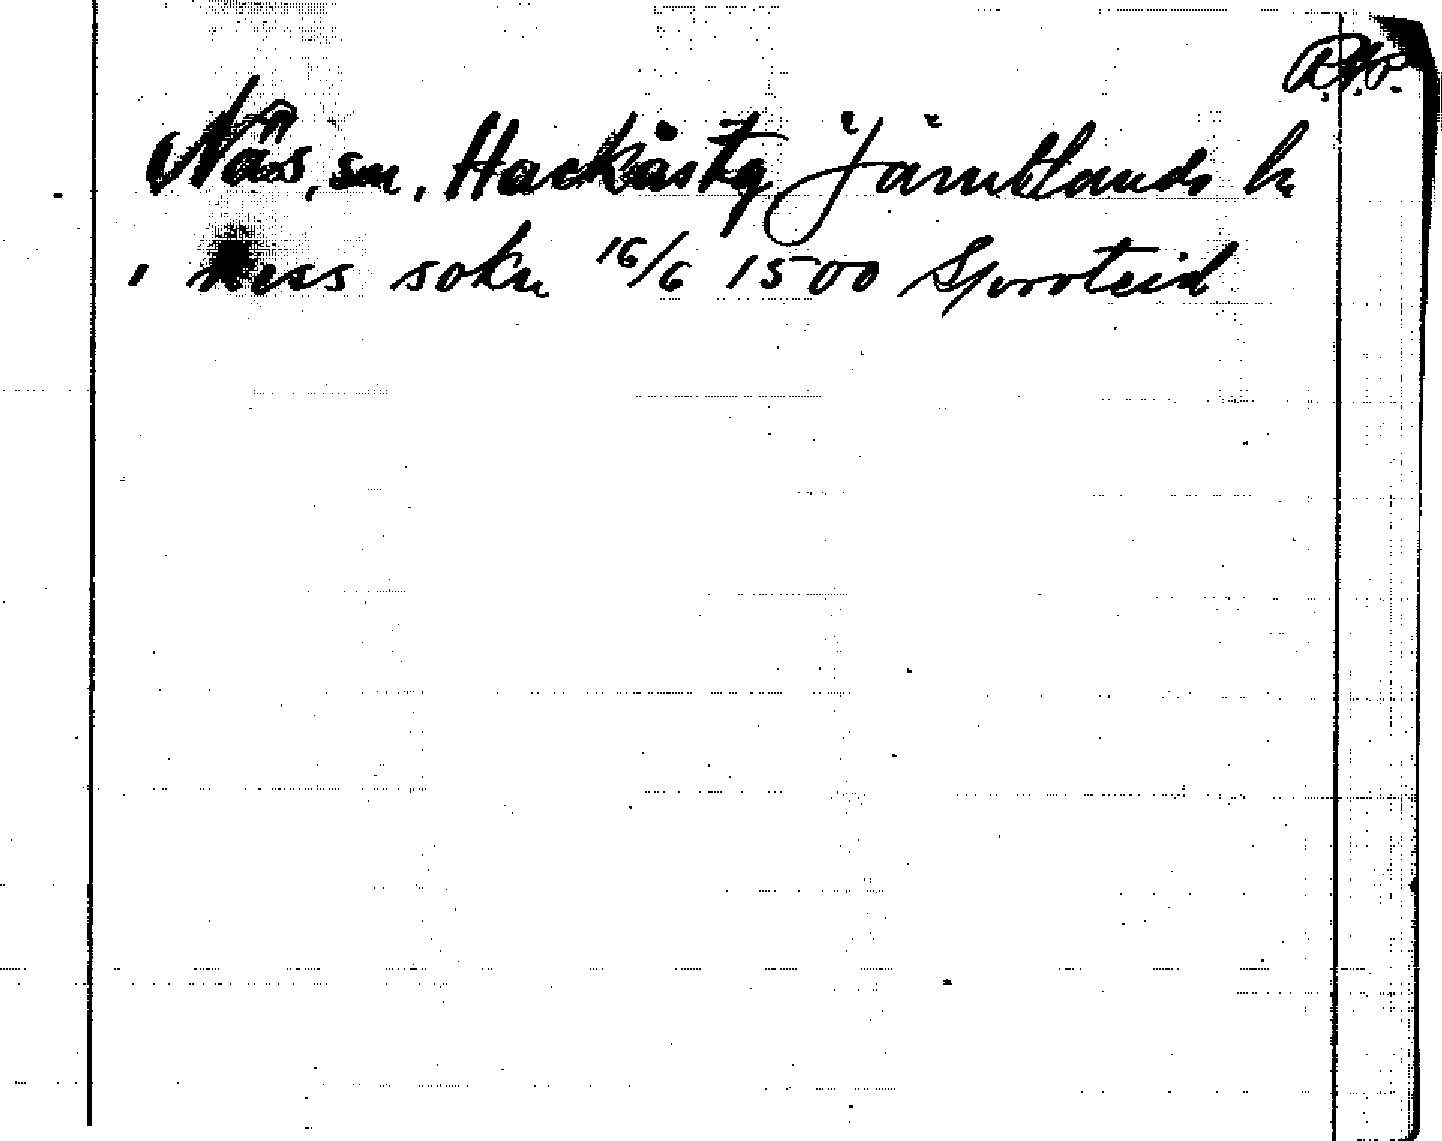 Näs, sn, Hackås tg Jämtlands l.
i ness sokn 16/6 1500 Sporrteid